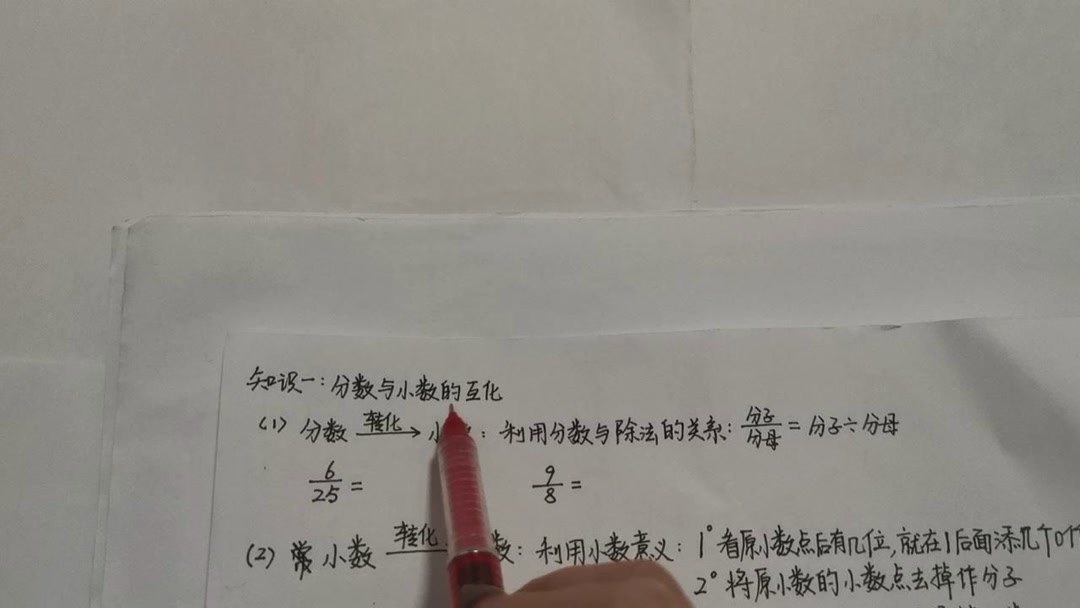 知识一：分数与小数的互化
(1) 分数 转化→ 小：利用分数与除法的关系：分子/分母 = 分子÷分母
6/25 = 9/8 =
(2) 小数 转化 数：利用小数意义：1° 看原小数点后有几位，就在1后面添几个0作
2° 将原小数的小数点去掉作分子